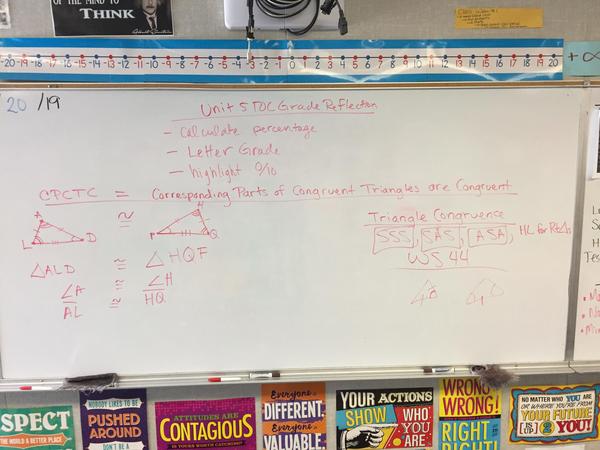 THINK
Albert Einstein
-20 -19 -18 -17 -16 -15 -14 -13 -12 -11 -10 -9 -8 -7 -6 -5 -4 -3 -2 -1 0 1 2 3 4 5 6 7 8 9 10 11 12 13 14 15 16 17 18 19 20
+∞
20 /19
Unit 5 TOC Grade Reflection
- Calculate percentage
- Letter Grade
- highlight 9/10
CPCTC = Corresponding Parts of Congruent Triangles are Congruent
A
L D
≅
H
F Q
△ALD ≅ △HQF
∠A ≅ ∠H
AL ≅ HQ
Triangle Congruence
SSS, SAS, ASA, HL for Rt△s
WS 44
SPECT
THE WORLD A BETTER PLACE
NOBODY LIKES TO BE
PUSHED
AROUND
DON'T BE A
ATTITUDES ARE
CONTAGIOUS
IS YOURS WORTH CATCHING?
Everyone is
DIFFERENT.
Everyone is
VALUABLE.
YOUR ACTIONS
SHOW WHO
YOU
ARE
WRONG'S
WRONG!
RIGHT'S
RIGHT!
NO MATTER WHO YOU ARE
OR WHERE YOU'RE FROM
YOUR FUTURE
IS UP 2 YOU!